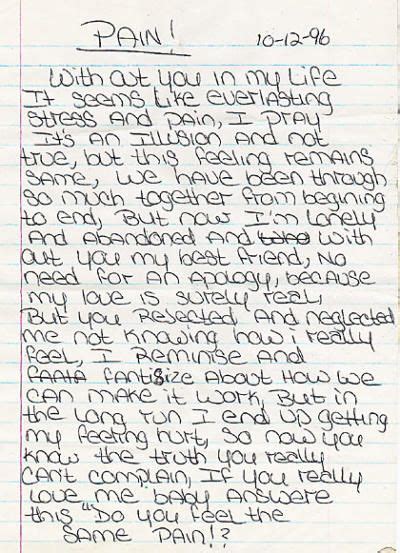 PAIN! 10-12-96
With out you in my Life
It seems Like everlasting
stress And pain, I pray
It's An Illusion And not
true, but this feeling remains
same, we have been through
so much together from begining
to end, But now I'm lonely
And Abandoned And with
out you my best friend, No
need for An Apology, because
my love is surely real,
But you Rejected And neglected
me not knowing how i really
feel, I Reminise And
fantisize About How we
can make it work, But in
the Long run I end up getting
my feeling hurt, So now you
know the truth you really
can't complain, If you really
Love me baby Answere
this "Do you feel the
same PAIN!?